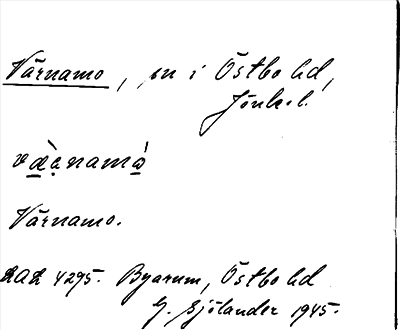 Värnamo, sn i Östbo hd,
Jönk. l.
væ̀rnamǫ́
Värnamo.
4295. Byarum, Östbo hd
G. Sjölander 1945.